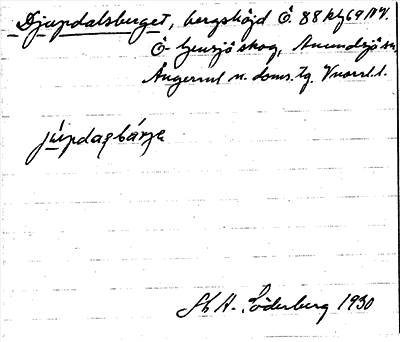 Djupdalsberget, bergshöjd Ö. 88 kfg 69 NV.
Ö Gensjö skog, Anundsjö sn,
Ångerml. n. doms. tg. Vnorrl. l.
júpdasbárge
Sth H. Söderberg 1930